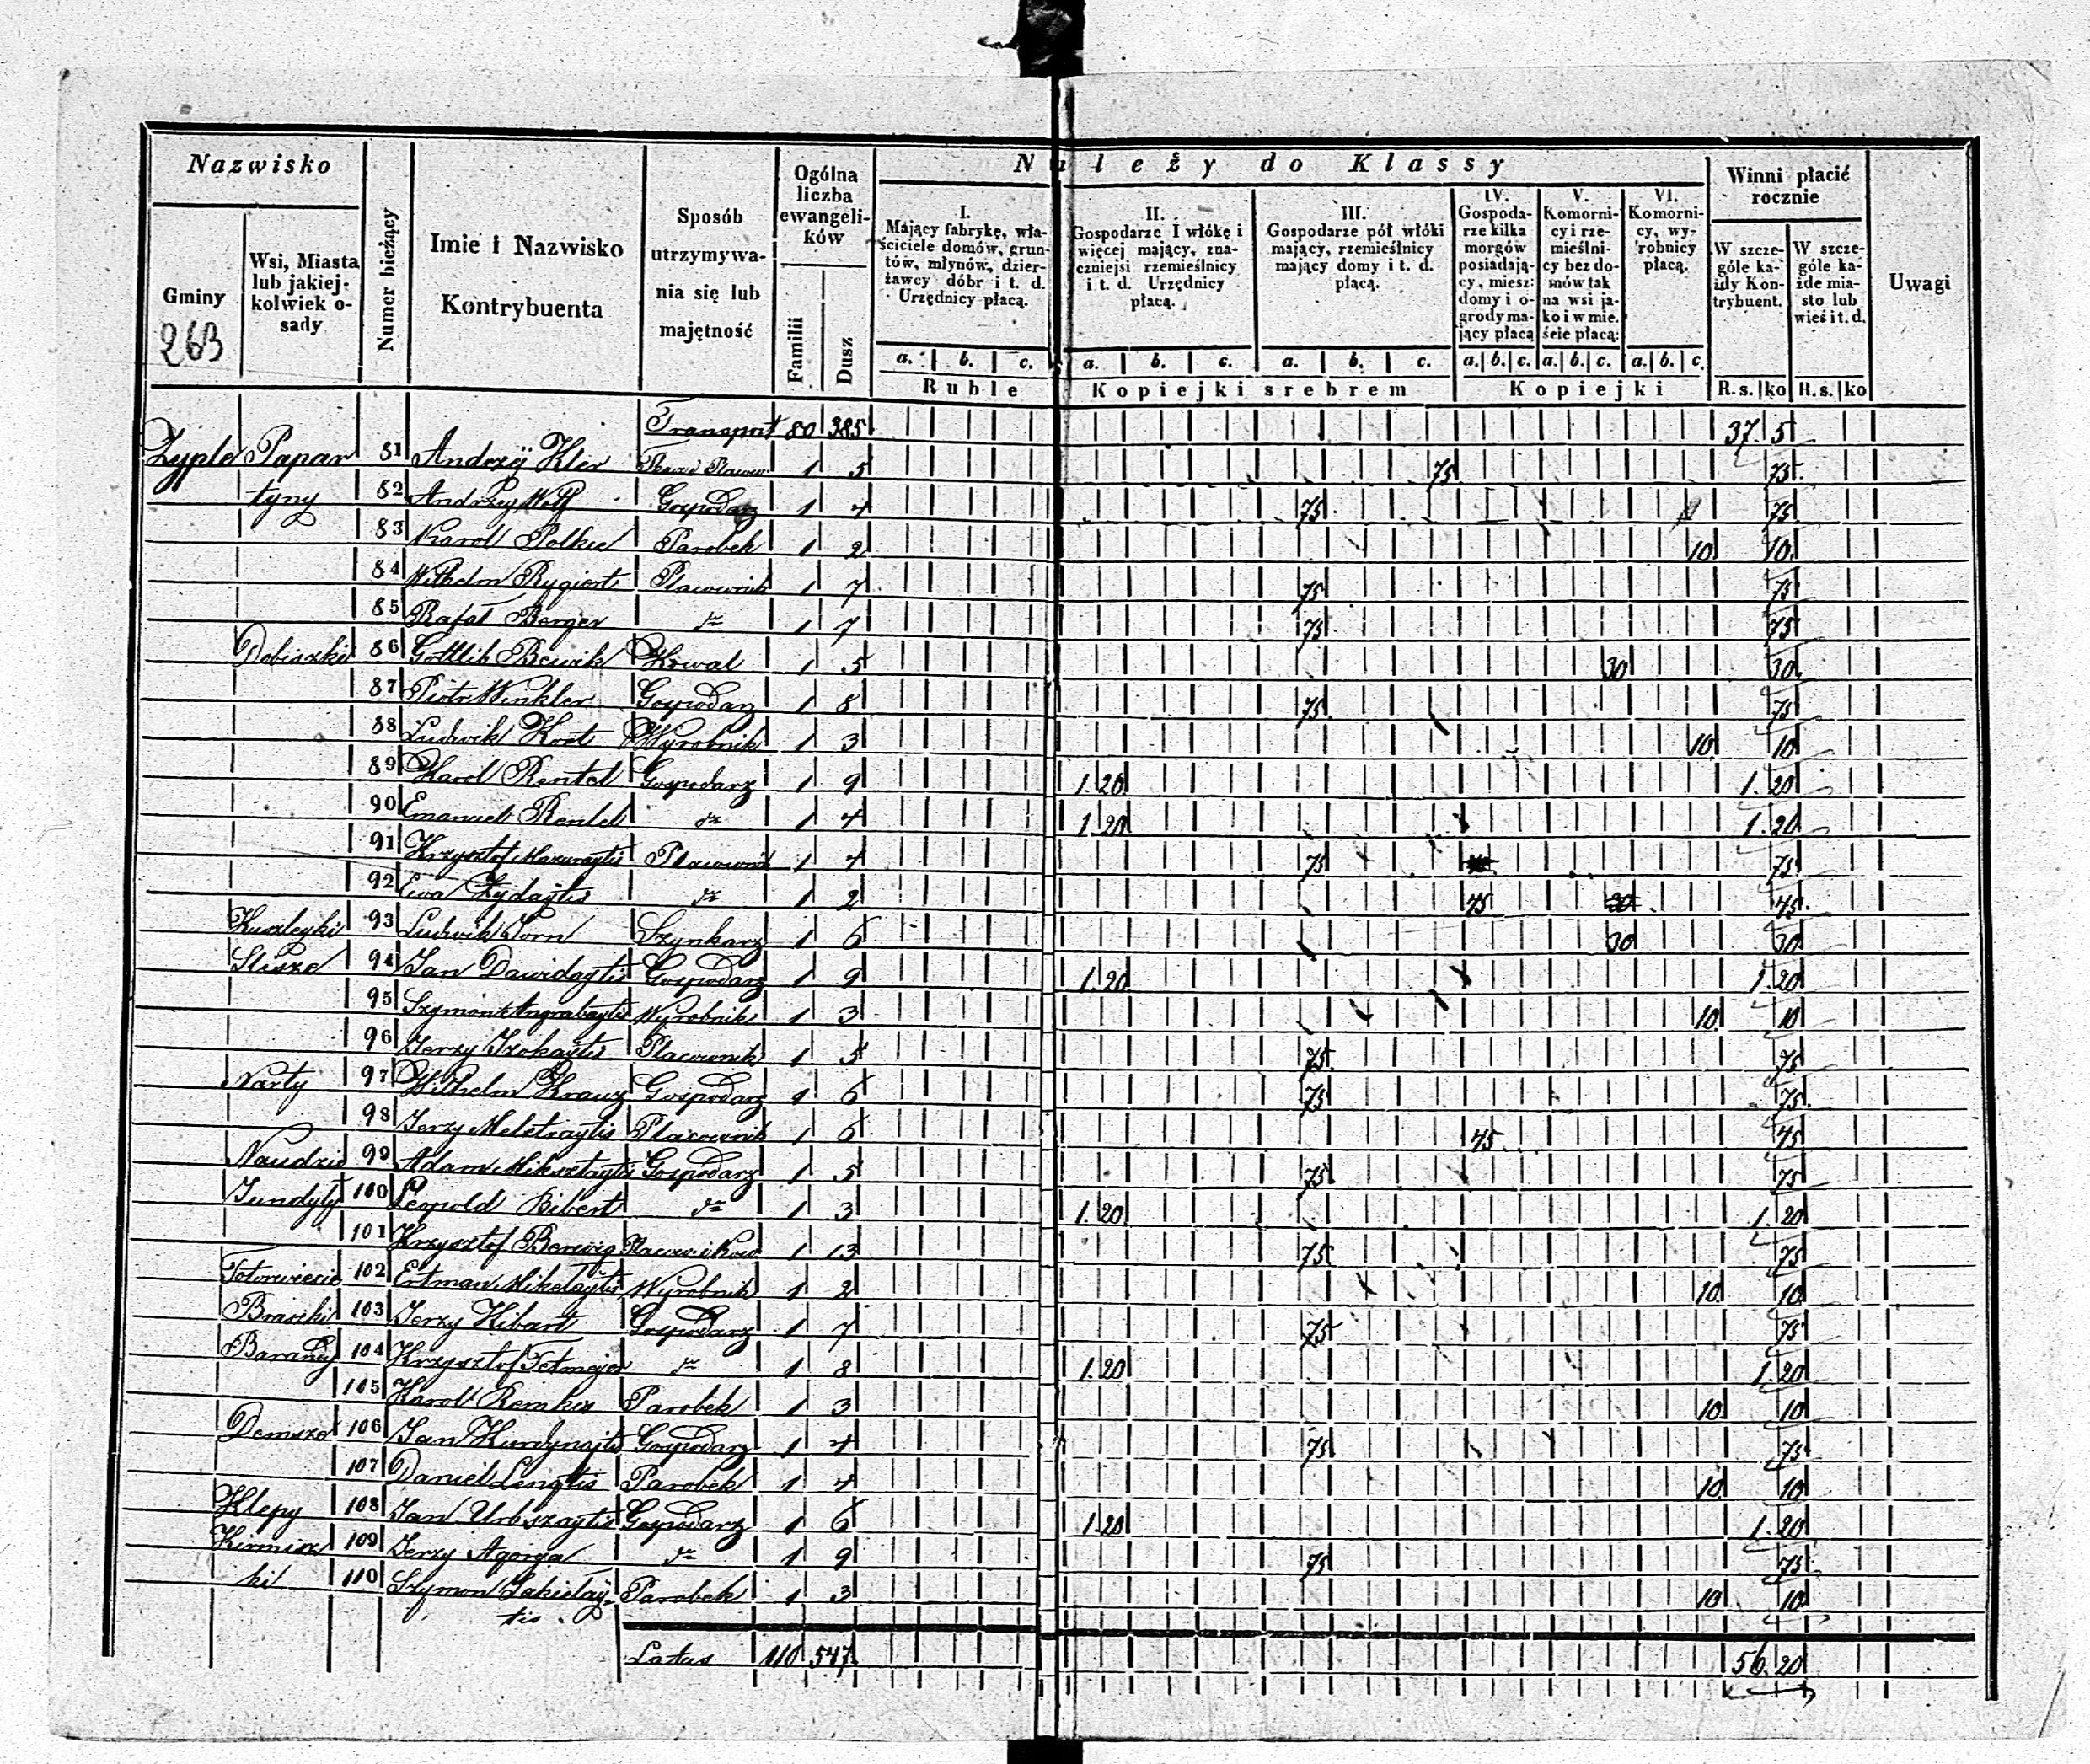 Nazwisko
Gminy
263
Wsi, Miasta lub jakiej- kolwiek o- sady
Numer bieżący
Imie i Nazwisko Kontrybuenta
Sposób utrzymywa- nia się lub majętność
Ogólna liczba ewangeli- ków
Familii
Dusz
Należy do Klassy
I. Mający fabrykę, wła- ściciele domów, grun- tów, młynów, dzier- żawcy dóbr i t. d. Urzędnicy płacą.
II. Gospodarze 1 włókę i więcej mający, zna- czniejsi rzemieślnicy i t. d. Urzędnicy płacą.
III. Gospodarze pół włóki mający, rzemieślnicy mający domy i t. d. płacą.
IV. Gospoda- rze kilka morgów posiadają- cy, miesz: domy i o- grody ma- jący płacą
V. Komorni- cy i rze- mieślni- cy bez do- mów tak na wsi ja- ko i w mie. ście płacą:
VI. Komorni- cy, wy- robnicy płacą.
Winni płacić rocznie
W szcze- góle ka- żdy Kon- trybuent.
W szcze- góle ka- żde mia- sto lub wieś i t. d.
Uwagi
a. b. c. a. b. c. a. b. c. a. b. c. a. b. c. a. b. c.
Ruble Kopiejki srebrem Kopiejki R. s. ko R. s. ko
Transport 80 385 37. 5
Zyple Papar 81 Andrzéj Kler 1 5 75 75
tyny 82 Andrzey Wolf Gospodarz 1 4 75 75
83 Karol Polkie Parobek 1 2 10 10
84 Wilhelm Rygiert Placownik 1 7 75 75
85 Rafał Berger do 1 7 75 75
Dobiszki 86 Gottlib Bewik Kowal 1 5 30 30
87 Piotr Winkler Gospodarz 1 8 75 75
88 Ludwik Kort Wyrobnik 1 3 10 10
89 Karol Rentel Gospodarz 1 9 1.20 1.20
90 Emanuel Rentel do 1 4 1.20 1.20
91 Krzysztof Mazuraytis Placownik 1 4 75 75
92 Ewa Zydaytis do 1 2 45 30 45
Kuzleyki 93 Ludwik Dorn Szynkarz 1 6 30 30
Slisze 94 Jan Dawidaytis Gospodarz 1 9 1.20 1.20
95 Szymon Angrabaytis Wyrobnik 1 3 10 10
96 Jerzy Izokaytis Placownik 1 5 75 75
Narty 97 Wilhelm Krauz Gospodarz 1 6 75 75
98 Jerzy Meletraytis Placownik 1 6 45 45
Naudzie 99 Adam Miksztaytis Gospodarz 1 5 75 75
Jundyły 100 Leopold Bibert do 1 3 1.20 1.20
101 Krzysztof Berwig Placow. i Kow. 1 13 75 75
102 Ertman Mikelaytis Wyrobnik 1 2 10 10
Braszki 103 Jerzy Kibart Gospodarz 1 7 75 75
Barańcy 104 Krzysztof Tetmejer do 1 8 1.20 1.20
105 Karol Remkus Parobek 1 3 10 10
Demsze 106 Jan Kurdynajtis Gospodarz 1 4 75 75
107 Daniel Lengtis Parobek 1 4 10 10
Klepy 108 Jan Urbszaytis Gospodarz 1 6 1.20 1.20
Kirmisz 109 Jerzy Agorga do 1 9 75 75
ki 110 Szymon Lakielaÿ- Parobek 1 3 10 10
tis.
Latus 110 547 56.20